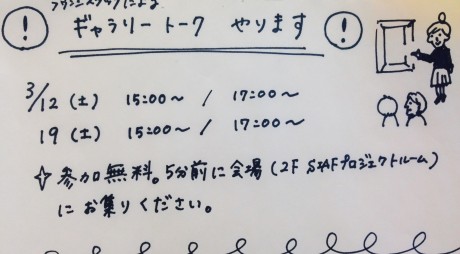 ギャラリートーク やります
3/12(土) 15:00~ / 17:00~
19(土) 15:00~ / 17:00~
参加無料。5分前に会場(2F プロジェクトルーム)
にお集りください。